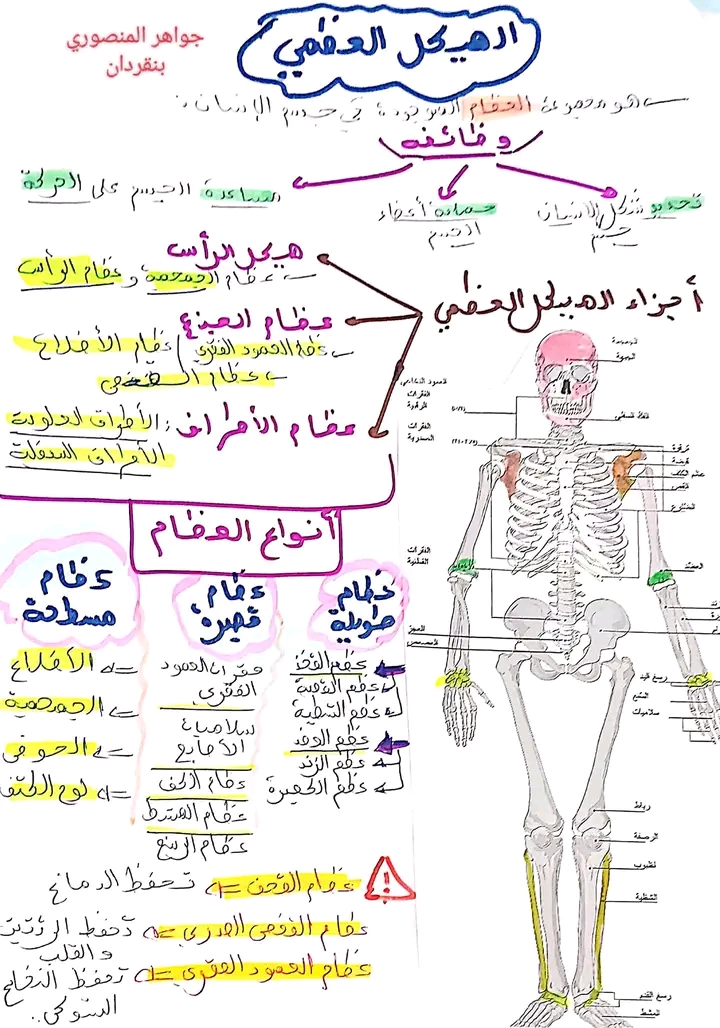 الهيكل العظمي
جواهر المنصوري
بنقردان
هو مجموعة العظام الموجودة في جسم الإنسان.
وظائفه
تحديد شكل الإنسان
جسم
حماية أعضاء
الجسم
مساعدة الجسم على الحركة
أجزاء الهيكل العظمي
هيكل الرأس
عظام الجمجمة و عظام الرأس
عظام الجذع
عظام العمود الفقري / عظام الأضلاع
عظام القفص
عظام الأطراف: الأطراف العلوية
الأطراف السفلية
أنواع العظام
عظام
طويلة
عظم الفخذ
عظم القصبة
عظم الشظية
عظم العضد
عظم الزند
عظم الكعبرة
عظام
قصيرة
فقرات العمود
الفقري
سلاميات
الأصابع
عظام الكف
عظام المشط
عظام الرسغ
عظام
مسطحة
الأضلاع
الجمجمة
الحوض
لوح الكتف
!
عظام القحف = تحفظ الدماغ
عظام القفص الصدري = تحفظ الرئتين
و القلب
عظام العمود الفقري = تحفظ النخاع
الشوكي..
الجبهة
الفقرات
الرقبية
الفقرات
الصدرية
ترقوة
القص
الفقرات
القطنية
العضد
العجز
العصعص
رسغ اليد
المشع
سلاميات
رباط
الرضفة
ظنبوب
الشظية
رسغ القدم
المشط